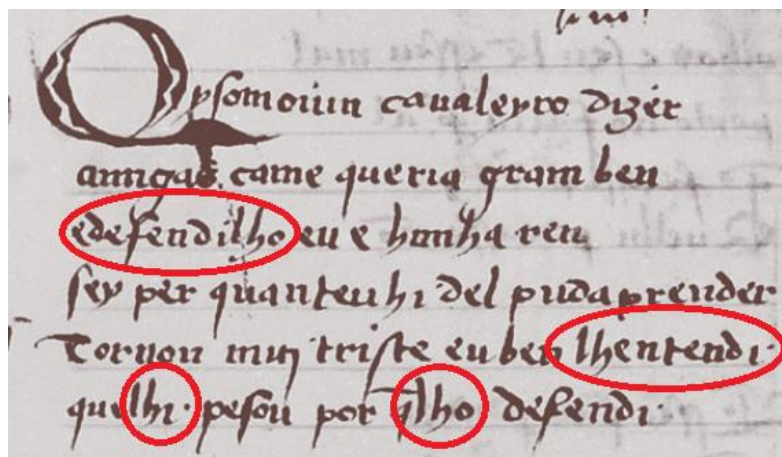 Qysomoiun caualeyro dizer
amigas. came queria gram ben
edefendilho eu e hunha ren
sey per quanteuhi del pudaprender
Tornou muj triste eu ben lhentendi.
quelhi. pesou por q̄lho defendi.